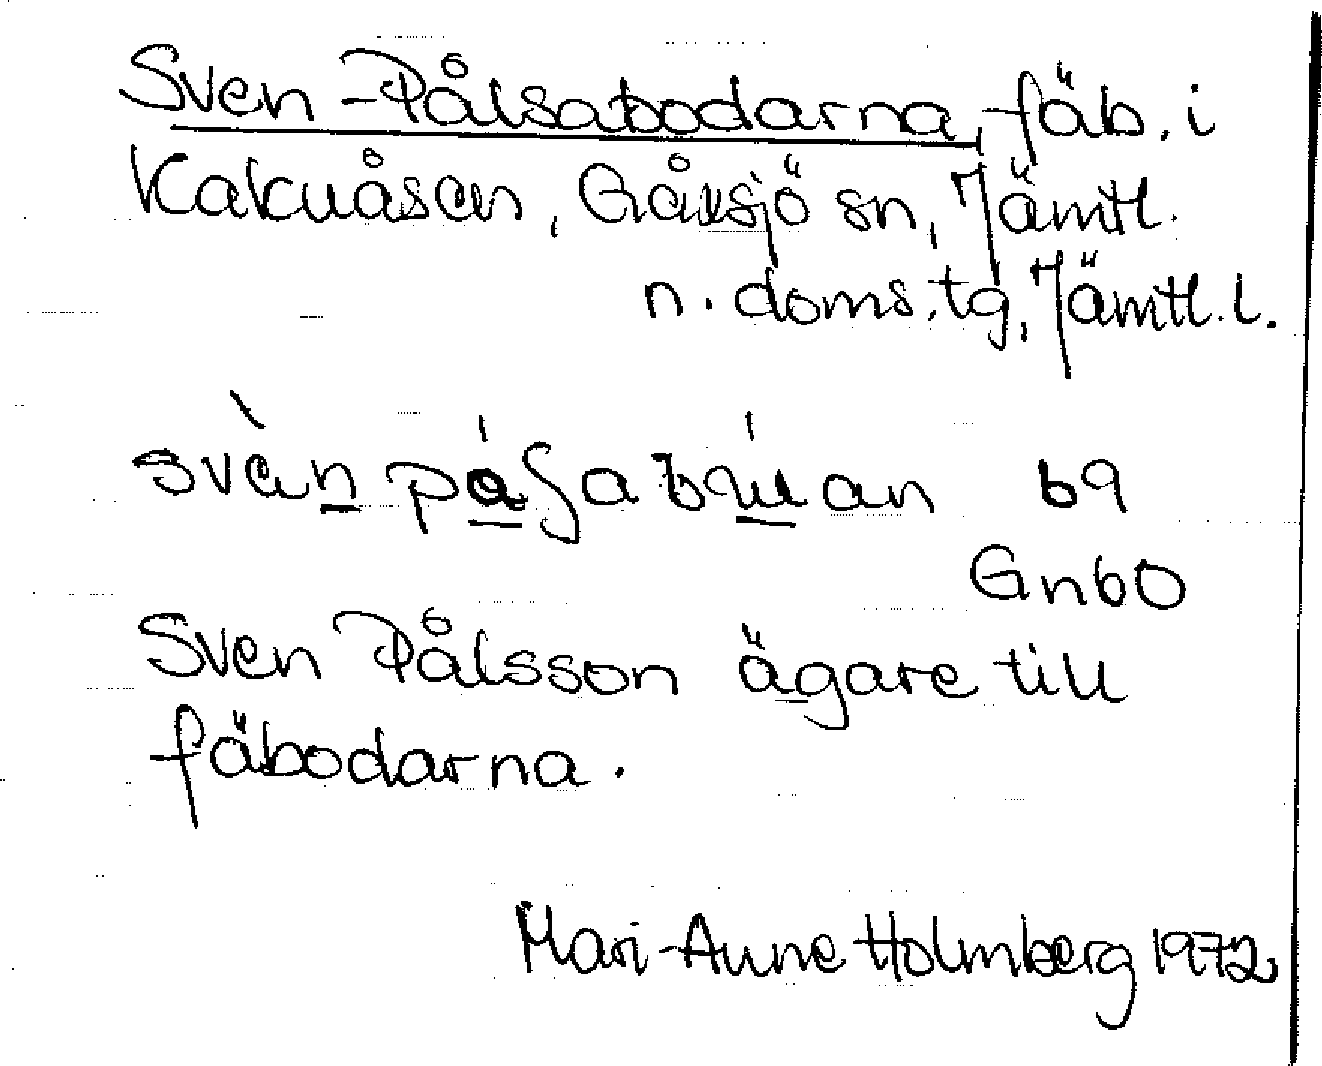 Sven-Pålsabodarna, fäb. i
Kakuåsen, Gåxsjö sn, Jämtl.
n. doms.tg, Jämtl. l.
69
Gn60
Sven Pålsson ägare till
fäbodarna.
Mari-Anne Holmberg 1972